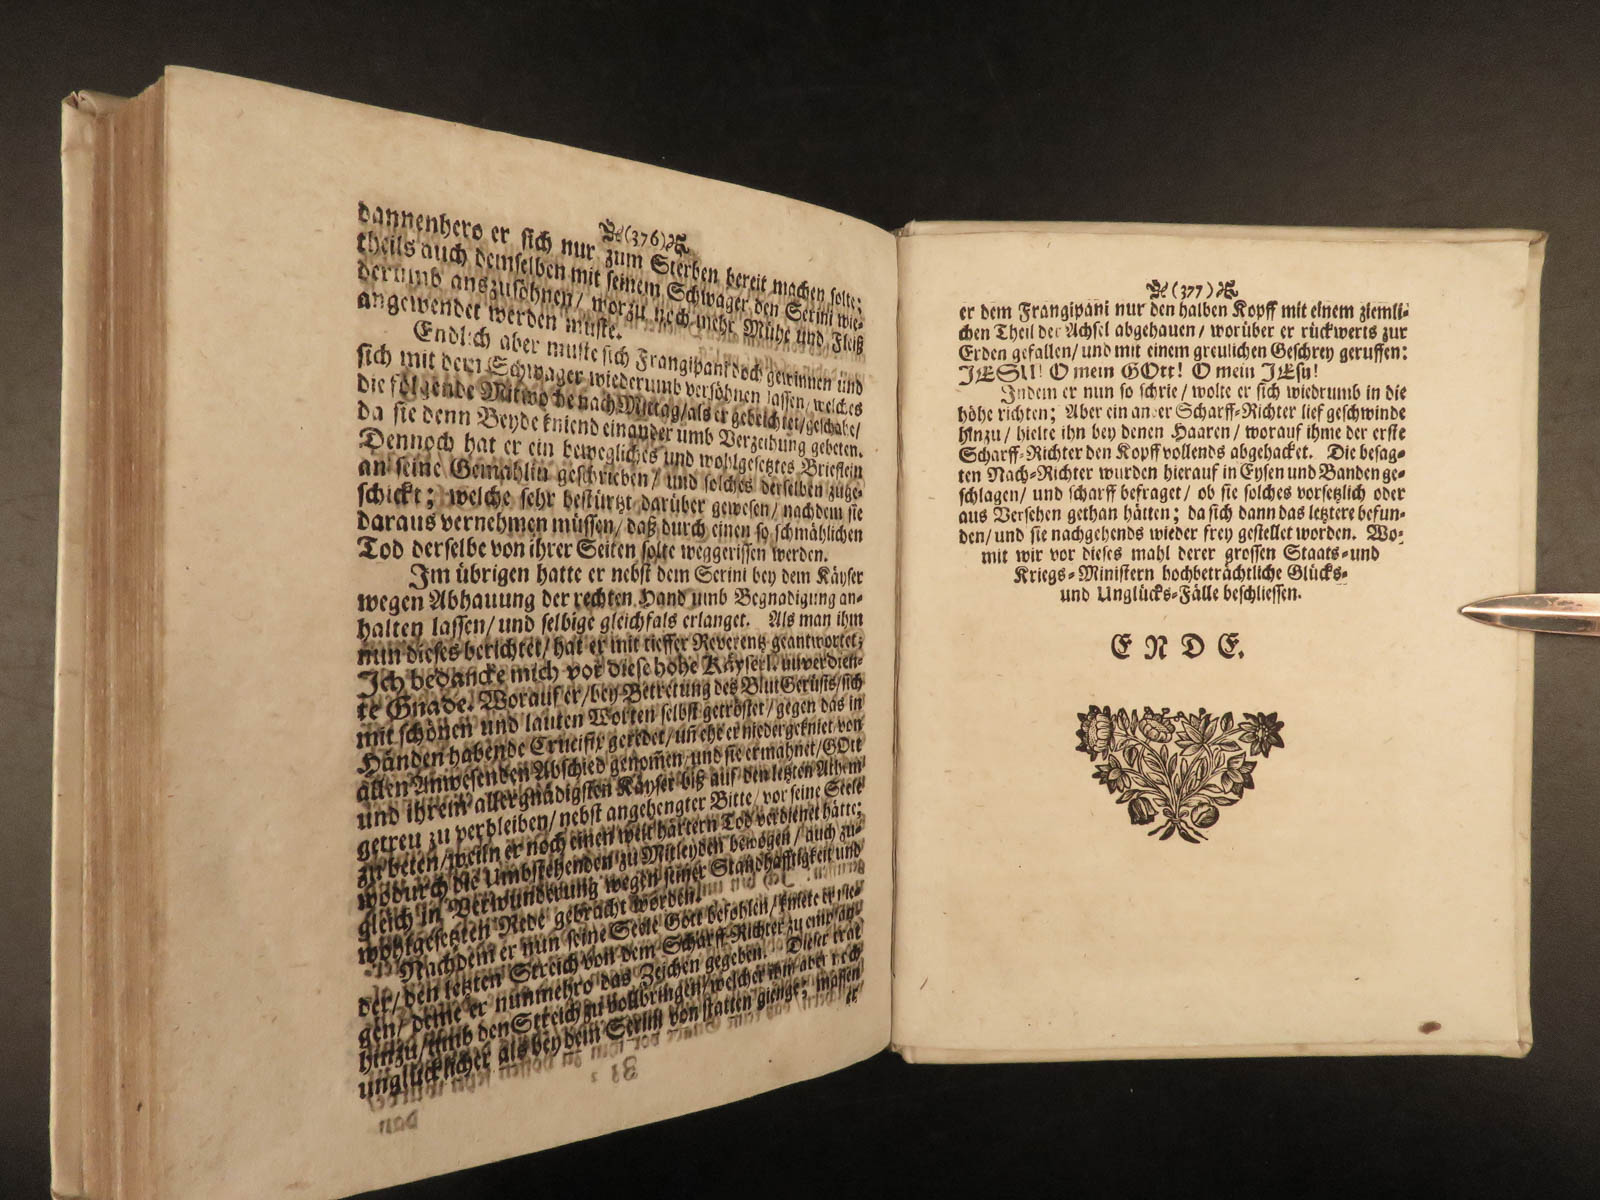 (376)
dannenhero er sich nur zum Sterben bereit machen solte;
theils auch demselben mit seinem Schwager den Serini wie-
derumb auszusöhnen/ worzu noch mehr Mühe und Fleiß
angewendet werden muste.
Endlich aber muste sich Frangipani doch gewinnen und
sich mit dem Schwager wiederumb versöhnen lassen/ welches
die folgende Mittwoche nach Mittag/ als er gebeichtet/ geschahe/
da sie denn Beyde kniend einander umb Verzeihung gebeten.
Dennoch hat er ein bewegliches und wohlgesetztes Brieflein
an seine Gemahlin geschrieben/ und solches derselben zuge-
schickt; welche sehr bestürtzt darüber gewesen/ nachdem sie
daraus vernehmen müssen/ daß durch einen so schmählichen
Tod derselbe von ihrer Seiten solte weggerissen werden.
Im übrigen hatte er nebst dem Serini bey dem Käyser
wegen Abhauung der rechten Hand umb Begnadigung an-
halten lassen/ und selbige gleichfals erlanget. Als man ihm
nun dieses berichtet/ hat er mit tieffer Reverentz geantwortet;
Ich bedancke mich vor diese hohe Käyserl. unverdien-
te Gnade. Worauf er/ bey Betretung des Blut Gerüsts/ sich
mit schönen und lauten Worten selbst getröstet/ gegen das in
Händen habende Crucifix geredet/ uñ ehe er niedergekniet/ von
allen Anwesenden Abschied genom̃en/ und sie ermahnet/ GOtt
und ihrem allergnädigsten Käyser biß auf den letzten Athem
getreu zu verbleiben/ nebst angehengter Bitte/ vor seine Seele
zu beten/ weiln er noch einen weit härtern Tod verdienet hätte;
wodurch die Umbstehenden zu Mitleyden bewogen/ auch zu-
gleich in Verwunderung wegen seiner Standhafftigkeit und
wohlgesetzten Rede gebracht worden.
Nachdem er nun seine Seele Gott befohlen/ kniete er nie-
der/ den letzten Streich von dem Scharff-Richter zu empfan-
gen/ deme er nunmehro das Zeichen gegeben. Dieser trat
hinzu/ umb den Streich zu vollbringen/ welcher ihm aber noch
unglücklicher als bey dem Serini von statten gienge; massen
er
(377)
er dem Frangipani nur den halben Kopff mit einem ziemli-
chen Theil der Achsel abgehauen/ worüber er rückwerts zur
Erden gefallen/ und mit einem greulichen Geschrey geruffen:
JESU! O mein GOtt! O mein JEsu!
Indem er nun so schrie/ wolte er sich wiedrumb in die
höhe richten; Aber ein ander Scharff-Richter lief geschwinde
hinzu/ hielte ihn bey denen Haaren/ worauf ihme der erste
Scharff-Richter den Kopff vollends abgehacket. Die besag-
ten Nach-Richter wurden hierauf in Eysen und Banden ge-
schlagen/ und scharff befraget/ ob sie solches vorsetzlich oder
aus Versehen gethan hätten; da sich dann das letztere befun-
den/ und sie nachgehends wieder frey gestellet worden. Wo-
mit wir vor dieses mahl derer grossen Staats- und
Kriegs-Ministern hochbeträchtliche Glücks-
und Unglücks-Fälle beschliessen.
ENDE.